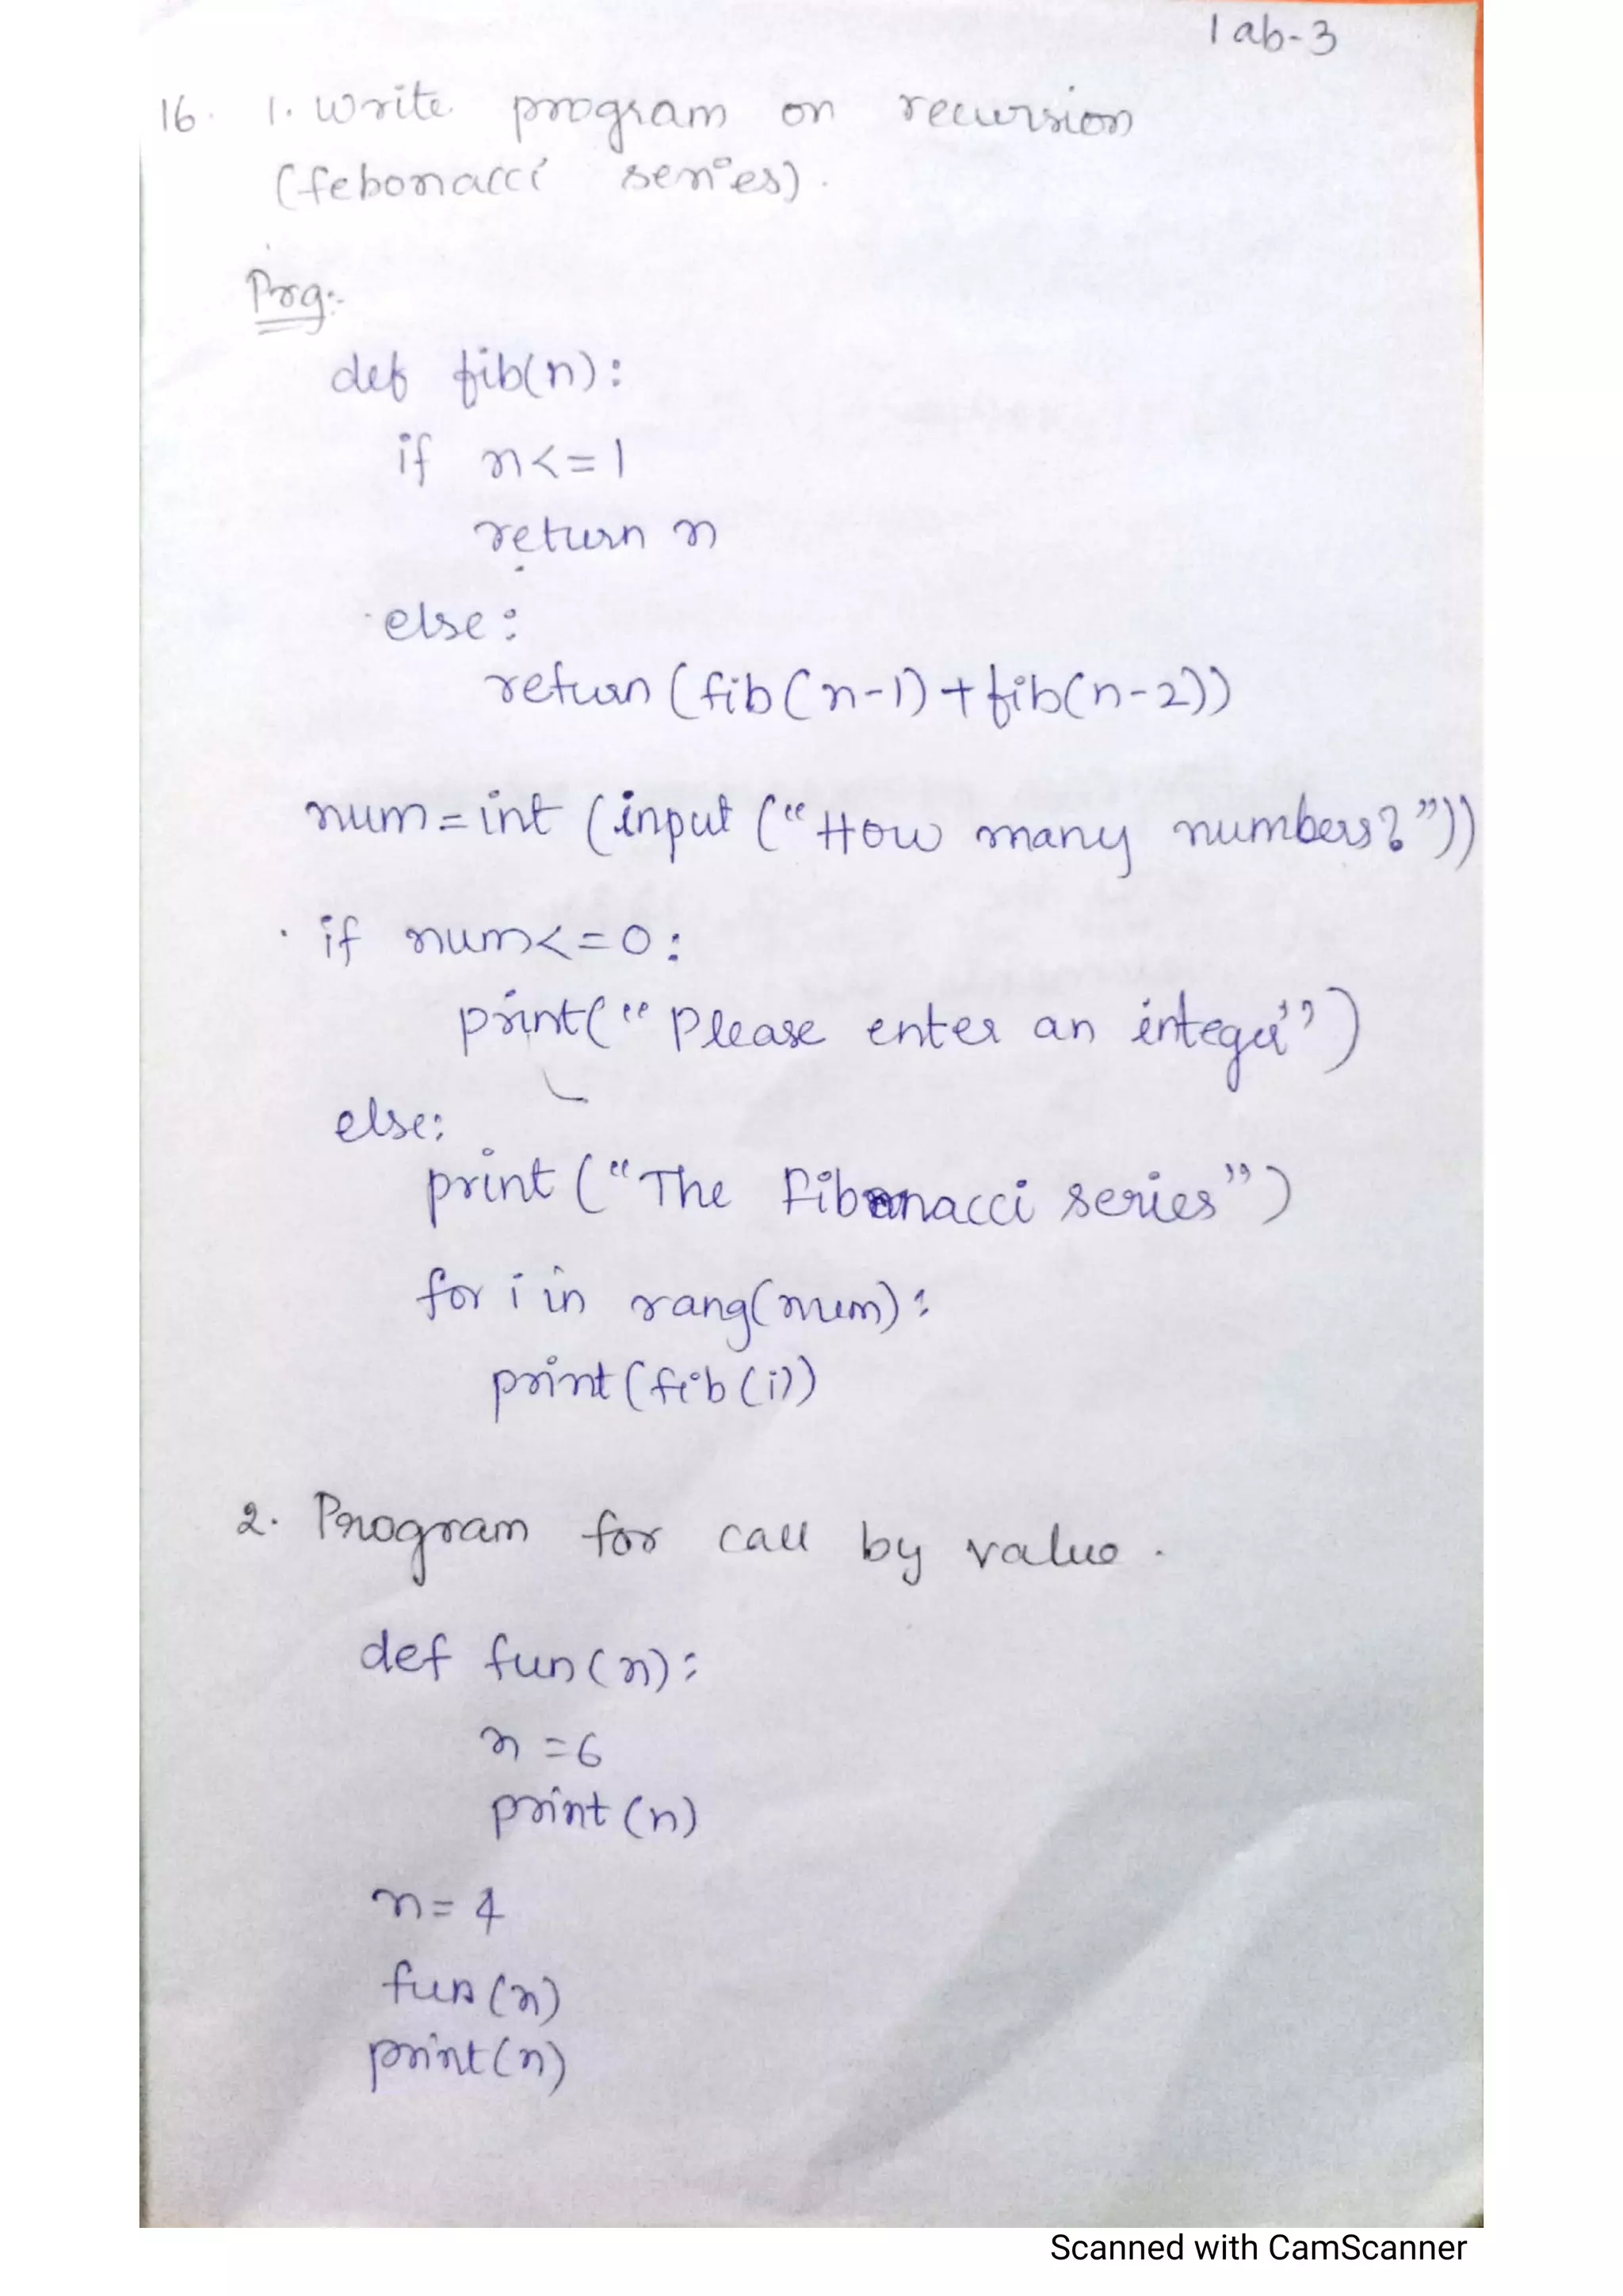 lab-3
16. 1. Write program on recursion
(febonacci series).
Prg:-
def fib(n):
if n<=1
return n
else:
return (fib(n-1)+fib(n-2))
num=int (input ("How many numbers?"))
if num<=0:
print("Please enter an integer")
else:
print ("The Fibonacci series")
for i in rang(num):
print(fib(i))
2. Program for call by value.
def fun(n):
n=6
print(n)
n=4
fun(n)
print(n)
Scanned with CamScanner